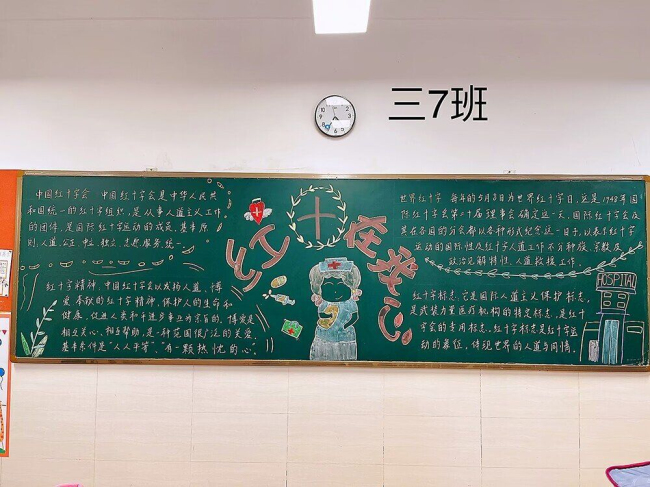 三7班
中国红十字会 中国红十字会是中华人民共
和国统一的红十字组织，是从事人道主义工作
的团体，是国际红十字运动的成员，基本原
则，人道、公正、中立、独立、志愿服务、统一、
红十字精神，中国红十字会以发扬人道、博
爱、奉献的红十字精神，保护人的生命和
健康，促进人类和平进步事业为宗旨的，博爱是
相互关心、相互帮助，是一种范围很广泛的关爱
基本条件是“人人平等”、“有一颗热忱的心”。
红十在我心
世界红十字 每年的5月8日为世界红十字日，这是1948年国
际红十字会第二十届理事会确定这一天，国际红十字会及
其在各国的分会都以各种形式纪念这一日子，以表示红十字
运动的国际性及红十字人道工作不分种族、宗教及
政治见解特性，人道救援工作
红十字标志，它是国际人道主义保护标志，
是武装力量医疗机构的特定标志，是红十
字会的专用标志，红十字标志是红十字运
动的象征，体现世界的人道与同情。
HOSPITAL